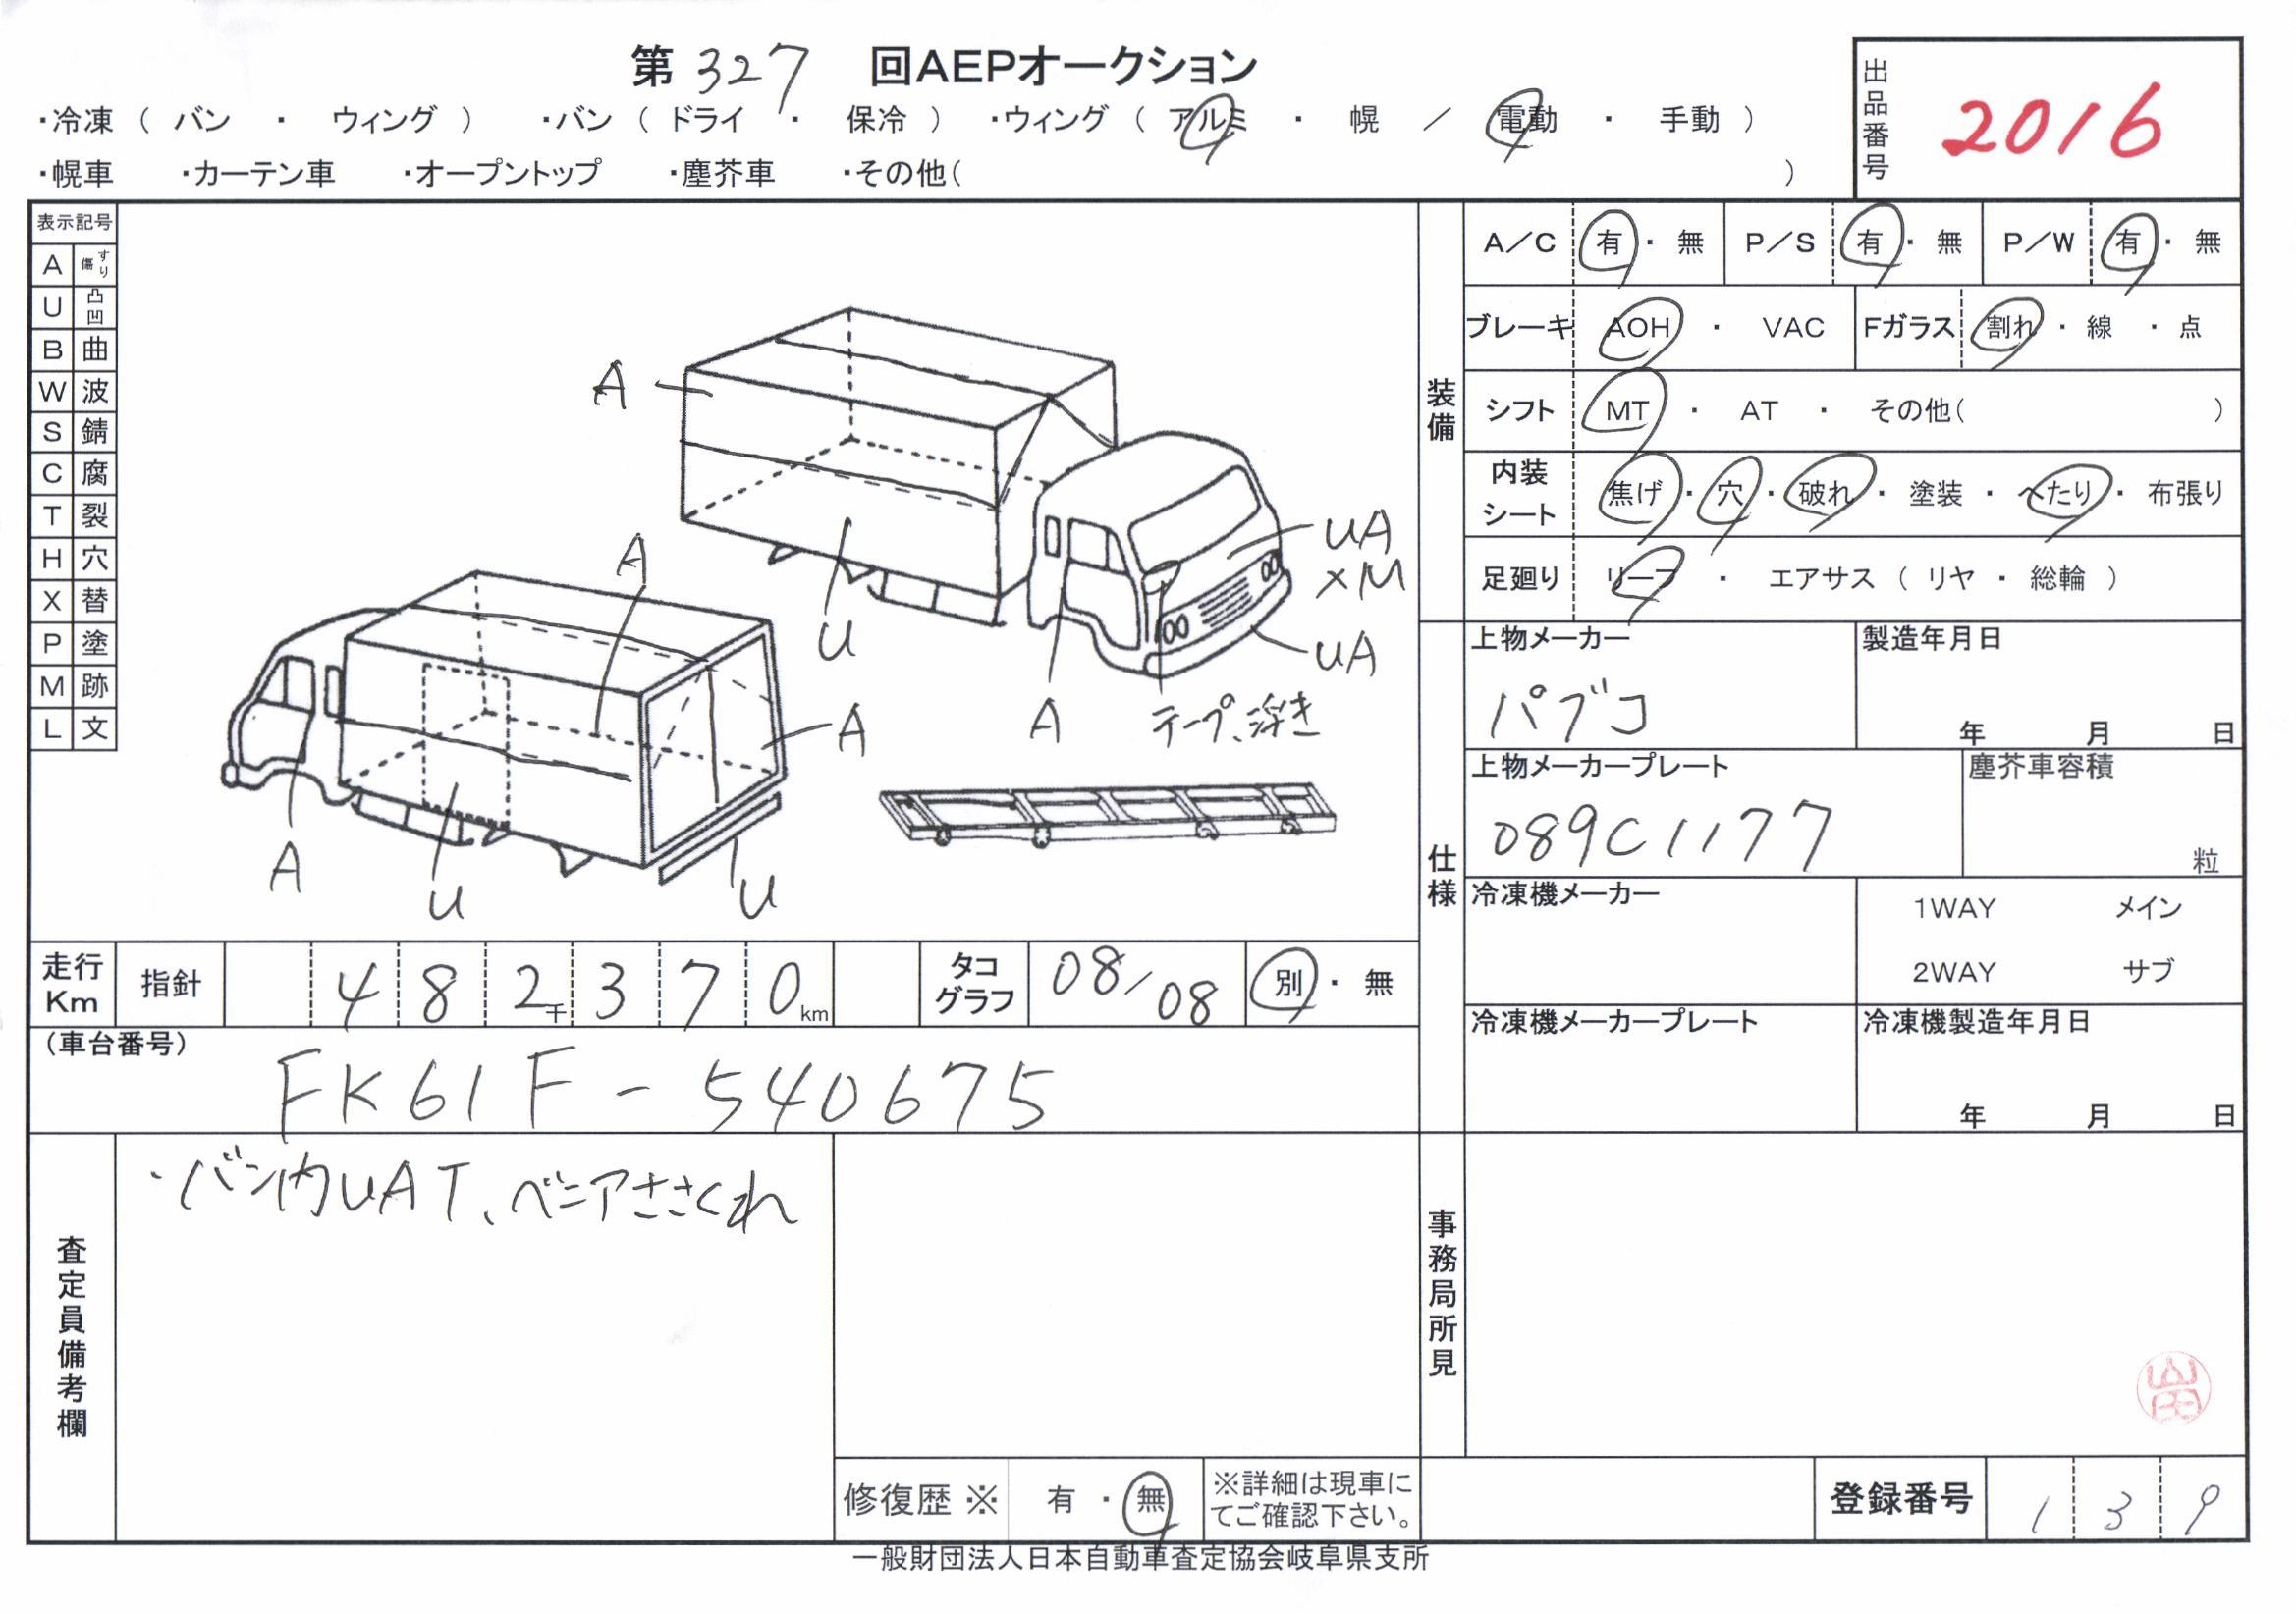 第 327 回AEPオークション
・冷凍 （ バン ・ ウィング ） ・バン （ ドライ ・ 保冷 ） ・ウィング （ アルミ ・ 幌 ／ 電動 ・ 手動 ）
・幌車 ・カーテン車 ・オープントップ ・塵芥車 ・その他（ ）
出品番号 2016
表示記号
A すり傷
U 凸凹
B 曲
W 波
S 錆
C 腐
T 裂
H 穴
X 替
P 塗
M 跡
L 文
A
U
UA
×M
UA
A
テープ、浮き
A
A
A
U
U
装備
A／C 有・無 P／S 有・無 P／W 有・無
ブレーキ AOH ・ VAC Fガラス 割れ・線・点
シフト MT ・ AT ・ その他（ ）
内装シート 焦げ・穴・破れ・塗装・へたり・布張り
足廻り リーフ ・ エアサス （ リヤ ・ 総輪 ）
仕様
上物メーカー 製造年月日
パブコ 年 月 日
上物メーカープレート 塵芥車容積
089C1177 粒
冷凍機メーカー 1WAY メイン
2WAY サブ
冷凍機メーカープレート 冷凍機製造年月日
年 月 日
走行Km 指針 482千370km タコグラフ 08/08 別・無
（車台番号）
FK61F-540675
査定員備考欄
・バン内UAT、ベニアささくれ
事務局所見
修復歴 ※ 有 ・ 無 ※詳細は現車にてご確認下さい。
登録番号 139
一般財団法人日本自動車査定協会岐阜県支所